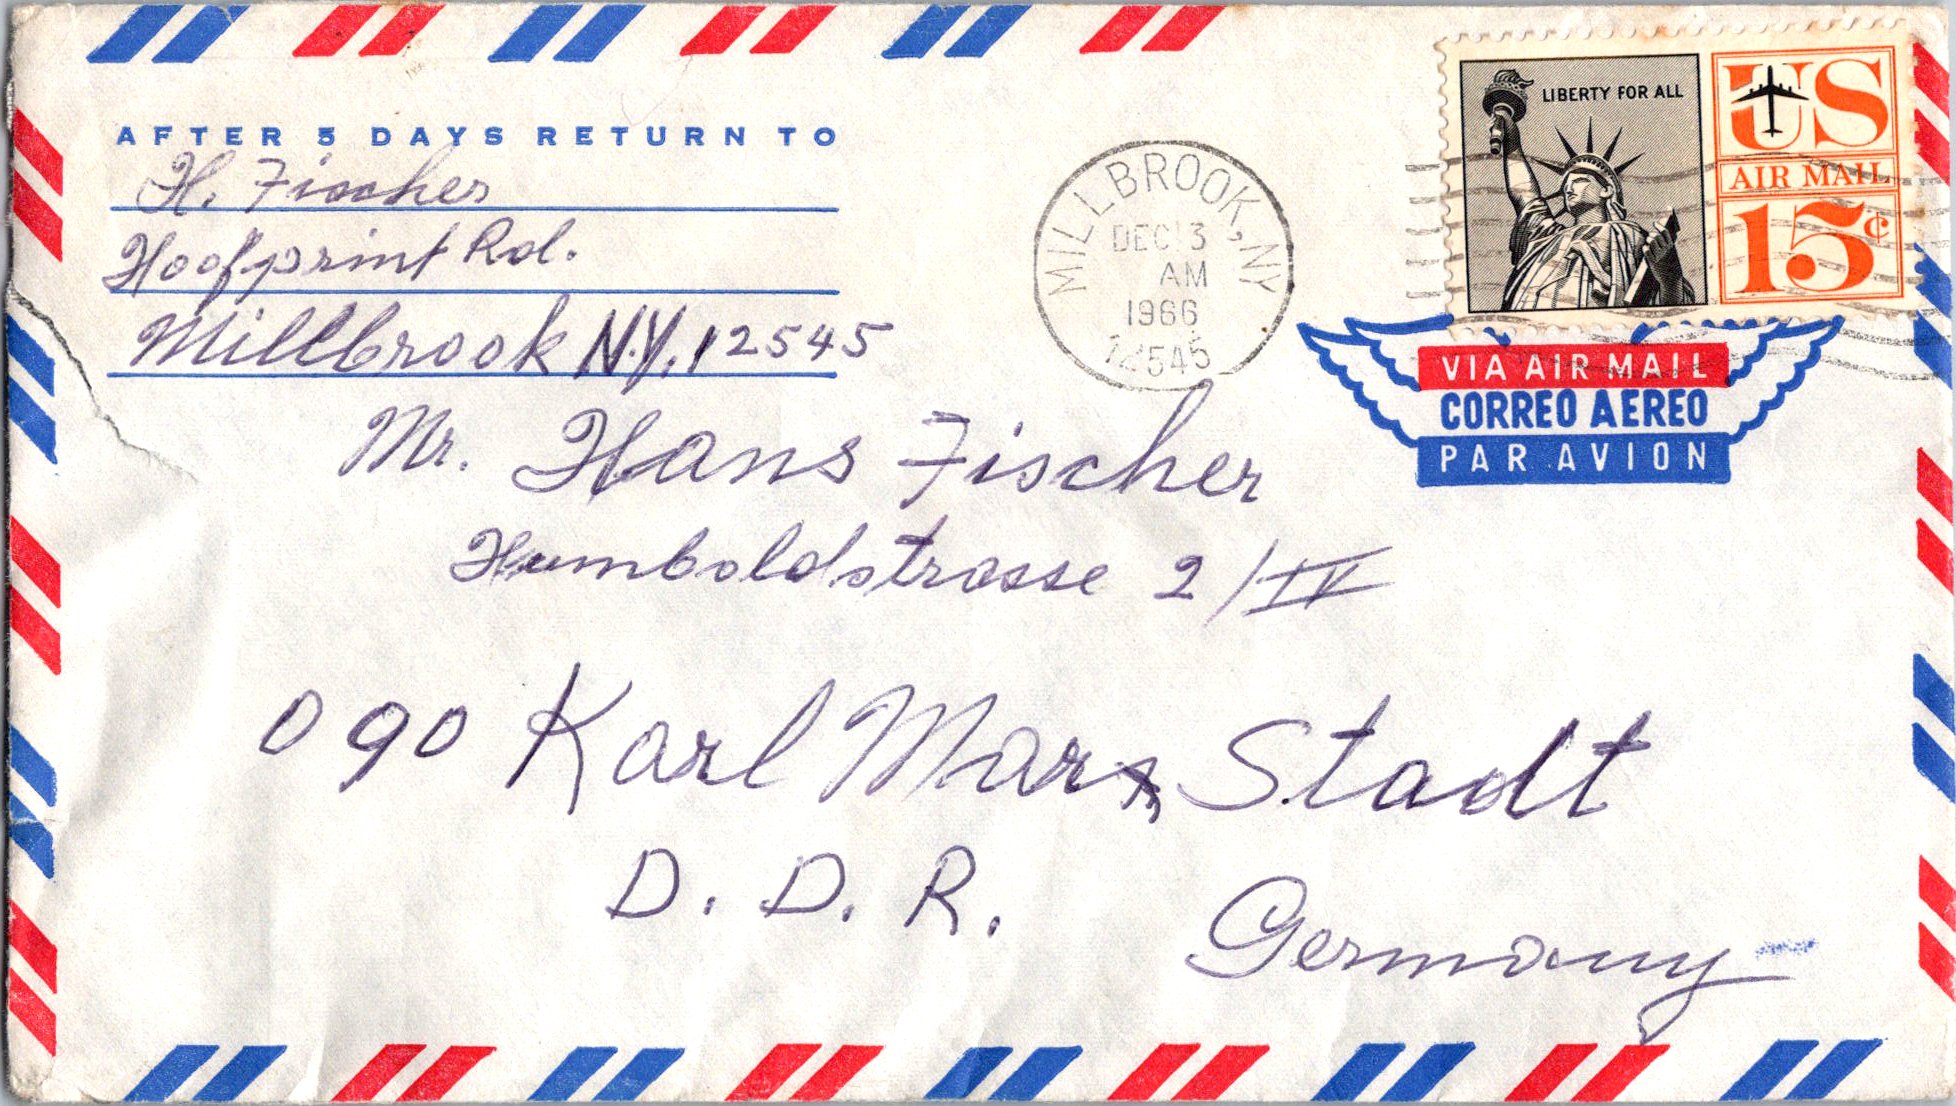 AFTER 5 DAYS RETURN TO
H. Fischer
Hoofprint Rd.
Millbrook N.Y. 12545
MILLBROOK, NY
DEC 13
AM
1966
12545
LIBERTY FOR ALL
US
AIR MAIL
15¢
VIA AIR MAIL
CORREO AEREO
PAR AVION
Mr. Hans Fischer
Humboldstrasse 2/IV
090 Karl Marx Stadt
D. D. R. Germany